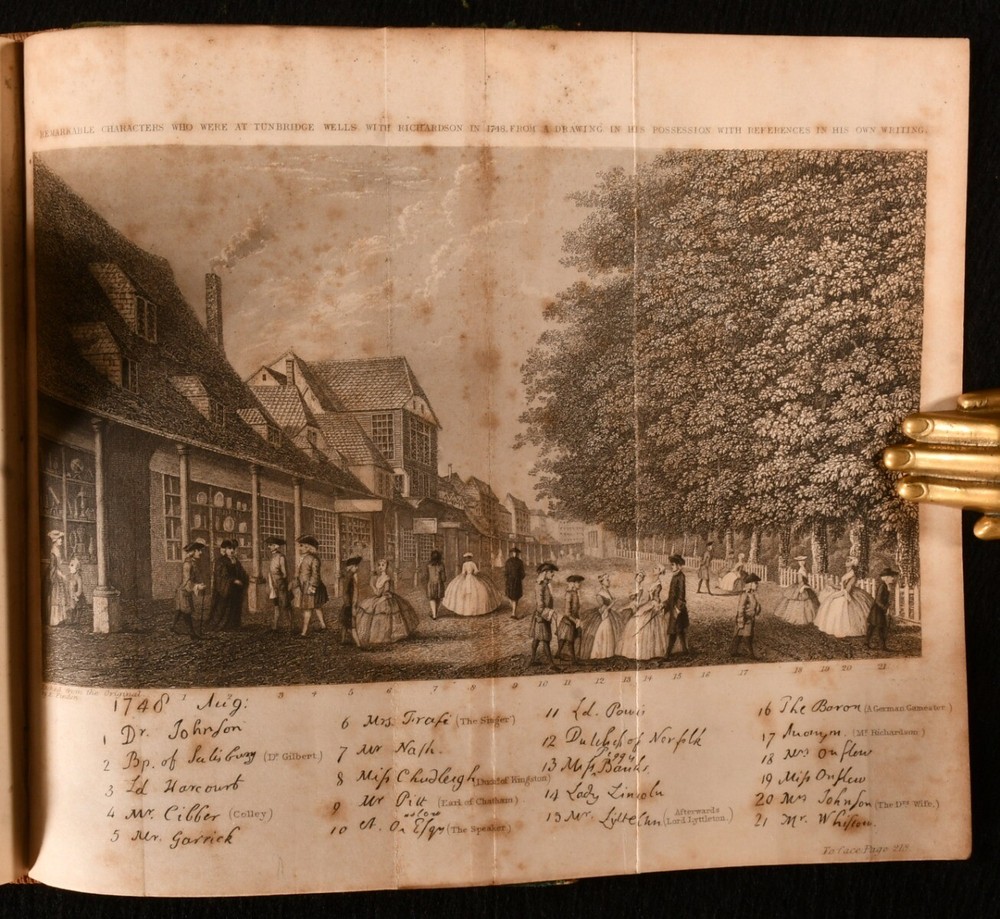 REMARKABLE CHARACTERS WHO WERE AT TUNBRIDGE WELLS WITH RICHARDSON IN 1748. FROM A DRAWING IN HIS POSSESSION WITH REFERENCES IN HIS OWN WRITING.
from the Original
1 2 3 4 5 6 7 8 9 10 11 12 13 14 15 16 17 18 19 20 21
1748 Aug:
1 Dr. Johnson
2 Bp. of Salisbury (Dr. Gilbert.)
3 Ld Harcourt
4 Mr. Cibber (Colley)
5 Mr. Garrick
6 Mrs. Frasi (The Singer)
7 Mr Nash.
8 Miss Chudleigh (Duchs. of Kingston)
9 Mr Pitt (Earl of Chatham)
10 A. On slow Esqr (The Speaker)
11 Ld. Powis
12 Dutchess of Norfolk
13 Miss Peggy Banks
14 Lady Lincoln
15 Mr. Lyttelton (Afterwards Lord Lyttleton.)
16 The Baron (A German Gamester.)
17 Anonym. (Mr. Richardson)
18 Mrs Onslow
19 Miss Onslow
20 Mrs Johnson (The Drs. Wife.)
21 Mr. Whiston.
To face Page